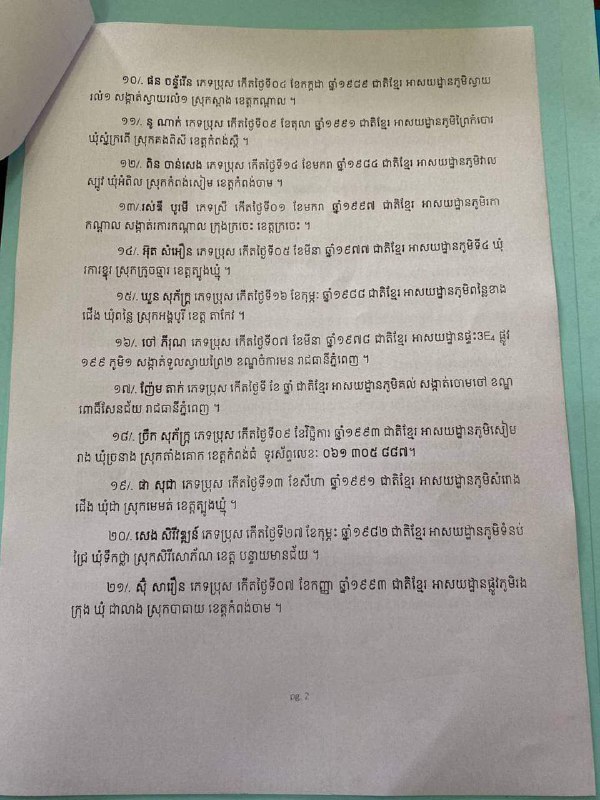 ១០/. ផន ចន្ទ័រើន ភេទប្រុស កើតថ្ងៃទី០៤ ខែកក្កដា ឆ្នាំ១៩៨៩ ជាតិខ្មែរ អាសយដ្ឋានភូមិស្វាយ
រលំ១ សង្កាត់ស្វាយរលំ១ ស្រុកស្អាង ខេត្តកណ្តាល ។
១១/. នូ ណាក់ ភេទប្រុស កើតថ្ងៃទី០៩ ខែតុលា ឆ្នាំ១៩៩១ ជាតិខ្មែរ អាសយដ្ឋានភូមិព្រៃកំបោរ
ឃុំស្នំក្រពើ ស្រុកគងពិសី ខេត្តកំពង់ស្ពឺ ។
១២/. ពិន ចាន់សេង ភេទប្រុស កើតថ្ងៃទី១៤ ខែមករា ឆ្នាំ១៩៨៤ ជាតិខ្មែរ អាសយដ្ឋានភូមិវាល
ស្បូវ ឃុំអំពិល ស្រុកកំពង់សៀម ខេត្តកំពង់ចាម ។
១៣/.រស់ឌី បូរមី ភេទស្រី កើតថ្ងៃទី០១ ខែមករា ឆ្នាំ១៩៩៧ ជាតិខ្មែរ អាសយដ្ឋានភូមិរកា
កណ្តាល សង្កាត់រការកណ្តាល ក្រុងក្រចេះ ខេត្តក្រចេះ ។
១៤/. អ៊ុត សំអឿន ភេទប្រុស កើតថ្ងៃទី០៥ ខែមីនា ឆ្នាំ១៩៧៧ ជាតិខ្មែរ អាសយដ្ឋានភូមិទី៤ ឃុំ
រការខ្នុរ ស្រុកក្រូចឆ្មារ ខេត្តត្បូងឃ្មុំ ។
១៥/. ឃួន សុភ័ក្រ្ត ភេទប្រុស កើតថ្ងៃទី១៦ ខែកុម្ភៈ ឆ្នាំ១៩៨៨ ជាតិខ្មែរ អាសយដ្ឋានភូមិពន្លៃខាង
ជើង ឃុំពន្លៃ ស្រុកអង្គបូរី ខេត្ត តាកែវ ។
១៦/. ចៅ ភីរុណ ភេទប្រុស កើតថ្ងៃទី០៧ ខែមីនា ឆ្នាំ១៩៧៨ ជាតិខ្មែរ អាសយដ្ឋានផ្ទះ3E₄ ផ្លូវ
១៩៩ ភូមិ១ សង្កាត់ទួលស្វាយព្រៃ២ ខណ្ឌចំការមន រាជធានីភ្នំពេញ ។
១៧/. ញ៉ែម តាក់ ភេទប្រុស កើតថ្ងៃទី ខែ ឆ្នាំ ជាតិខ្មែរ អាសយដ្ឋានភូមិគល់ សង្កាត់ចោមចៅ ខណ្ឌ
ពោធិ៍សែនជ័យ រាជធានីភ្នំពេញ ។
១៨/. ច្រឹក សុភ័ក្រ្ត ភេទប្រុស កើតថ្ងៃទី០៩ ខែវិច្ឆិការ ឆ្នាំ១៩៩៣ ជាតិខ្មែរ អាសយដ្ឋានភូមិសៀម
រាង ឃុំច្រនាង ស្រុកតាំងគោក ខេត្តកំពង់ធំ ទូរស័ព្ទលេខៈ 0៦១ ៣០៥ ៨៨៧។
១៩/. ផា សុជា ភេទប្រុស កើតថ្ងៃទី១៣ ខែសីហា ឆ្នាំ១៩៩១ ជាតិខ្មែរ អាសយដ្ឋានភូមិសំរោង
ជើង ឃុំដា ស្រុកមេមត់ ខេត្តត្បូងឃ្មុំ ។
២០/. សេង សិរីវឌ្ឍន៍ ភេទប្រុស កើតថ្ងៃទី២៧ ខែកុម្ភៈ ឆ្នាំ១៩៨២ ជាតិខ្មែរ អាសយដ្ឋានភូមិទំនប់
ជ្រៃ ឃុំទឹកថ្លា ស្រុកសិរីសោភ័ណ ខេត្ត បន្ទាយមានជ័យ ។
២១/. ស៊ុំ សារឿន ភេទប្រុស កើតថ្ងៃទី០៧ ខែកញ្ញា ឆ្នាំ១៩៩៣ ជាតិខ្មែរ អាសយដ្ឋានផ្លូវភូមិរង
ក្រុង ឃុំ ជាលាង ស្រុកបាធាយ ខេត្តកំពង់ចាម ។
pg. 2